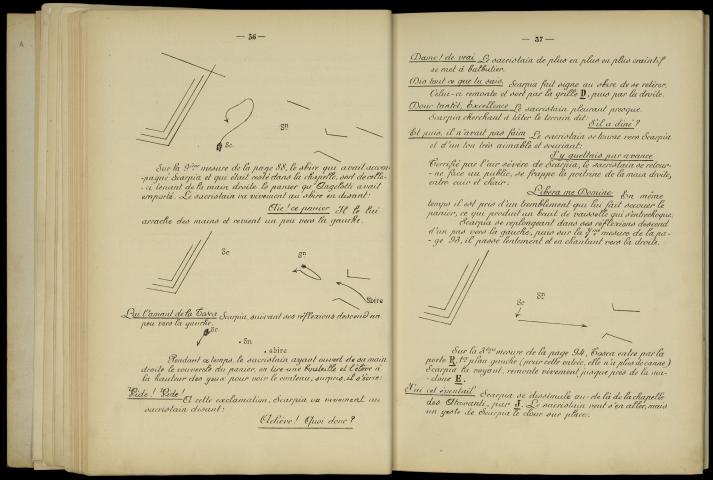 — 36 —
Sn
Sc
Sur la 9ème mesure de la page 88, le sbire qui avait accom-
-pagné Scarpia et qui était resté dans la chapelle, sort de celle-
-ci tenant de la main droite le panier qu'Angelotti avait
emporté. Le sacristain va vivement au sbire en disant:
Tic! ce panier Il le lui
arrache des mains et revient un peu vers la gauche.
Sc
Sn
Sbire
Lui l'amant de la Tosca Scarpia, suivant ses réflexions descend un
peu vers la gauche.
Sc.
Sn
sbire
Pendant ce temps, le sacristain ayant ouvert de sa main
droite le couvercle du panier, en tire une bouteille et l'élève à
la hauteur des yeux pour voir le contenu, surpris, il s'écrie:
Vide! Vide!
A cette exclamation, Scarpia va vivement au
sacristain disant:
Achève! Quoi donc?
— 37 —
Dame! de vrai Le sacristain de plus en plus en plus craintif
se met à balbutier.
Dis tout ce que tu sais. Scarpia fait signe au sbire de se retirer.
Celui-ci remonte et sort par la grille D, puis par la droite.
Donc tantôt, Excellence Le sacristain pleurant presque.
Scarpia cherchant à tâter le terrain dit:
S'il a diné?
Et puis, il n'avait pas faim Le sacristain se tourne vers Scarpia
et d'un ton très aimable et souriant:
J'y guettais par avance
Terrifié par l'air sévère de Scarpia, le sacristain se retour-
-ne face au public, se frappe la poitrine de la main droite,
entre cuir et chair:
Libera me Domine En même
temps il est pris d'un tremblement qui lui fait secouer le
panier, ce qui produit un bruit de vaisselle qui s'entrechoque.
Scarpia se replongeant dans ses réflexions descend
d'un pas vers la gauche, puis sur la mesure de la pa-
-ge 93, il passe lentement et en chantant vers la droite.
Sc
Sn
Sur la 3ème mesure de la page 94, Tosca entre par la
porte R, 1er plan gauche (pour cette entrée, elle n'a plus de canne)
Scarpia la voyant, remonte vivement jusque près de la ma-
-done E.
J'ai cet éventail Scarpia se dissimule au-delà de la chapelle
des Attavanti, par J. Le sacristain veut s'en aller, mais
un geste de Scarpia le cloue sur place.